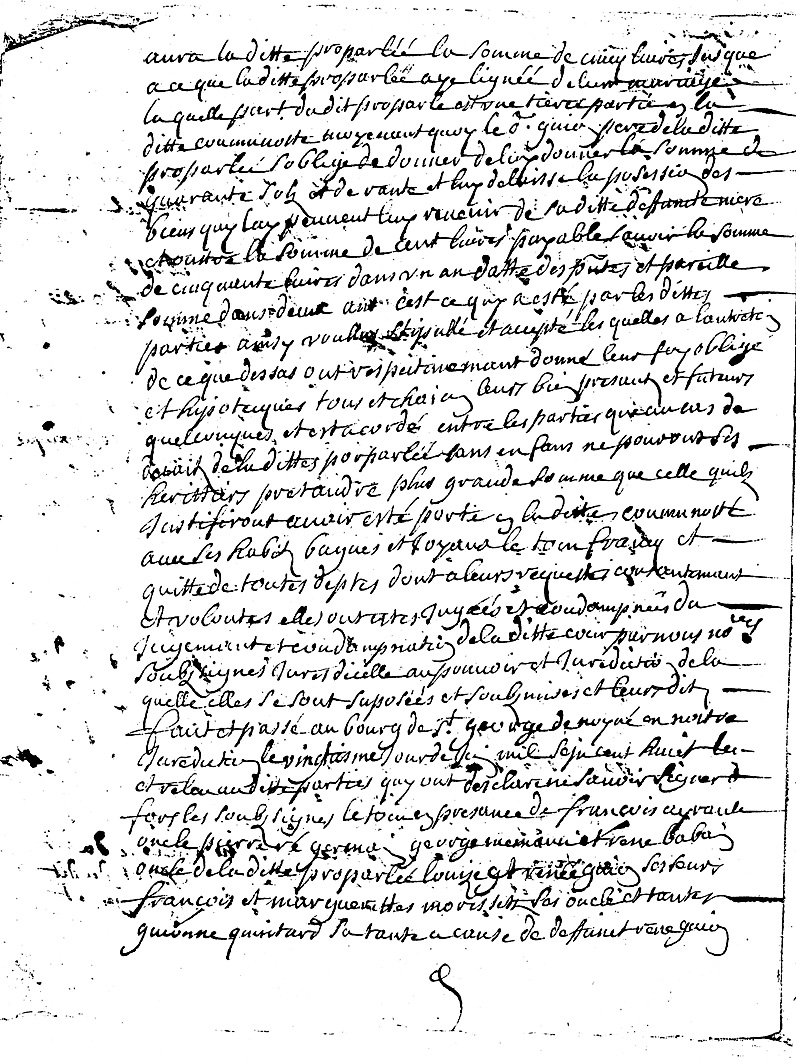 aura la ditte proparlée la somme de cinq livres jusque
a ce que la ditte proparlée aye lignée de leur mariage
la quelle part du dit proparlé est une tierce partie en la
ditte communoté moyenant quoy le d. guion pere de la ditte
proparlée s'oblige de donner de luy donner la somme de
quarante sols de rante et luy delaisse la posession des
biens quy luy peuvent luy revenir de sa ditte deffunte mere
et outre la somme de cent livres payable savoir la somme
de cinquante livres dans un an datte des pntes et pareille
somme dans deux ans c'est ce quy a esté par les dittes
parties ainsy voullu stipullé et accepté les quelles a l'antretien
de ce que dessas ont respectivemant donné leur foy obligé
et hypotequés tous et chaicun leurs bien presant et futeurs
quelconques et est acordé entre les parties que au cas de
de la dittes porparlée sans enfans ne pouront ses
herittiers pretandre plus grande somme que celle quils
justifiront avoir esté porté en la ditte communoté
avec ses habits bagues et joyaux le tout franq et
quitte de toutes deptes dont a leurs requettes contantemant
et volontés elles ont estes jugées et condampnées du
jugemant et condampnation de la ditte cour par nous nores
soubsignes juresdicelle au pouvoir et juredictio de la
quelle elles se sont suposées et soubmises et leurs dit
fait et passé au bourg de St george de noyné en nottre
juredictio le vingtiesme jour de mil sept cent huict leu
et releu au ditte parties quy ont desclaré ne savoir signer
fors les soubsignes le tout en presance de françois ayrault
oncle pierre ré germain george memain et rene babin
oncle de la ditte proparlée louize et renée guion ses seurs
françois et marguerittes morisset ses oncle et tante
guionne quintard sa tante a cause de deffunt rene guion